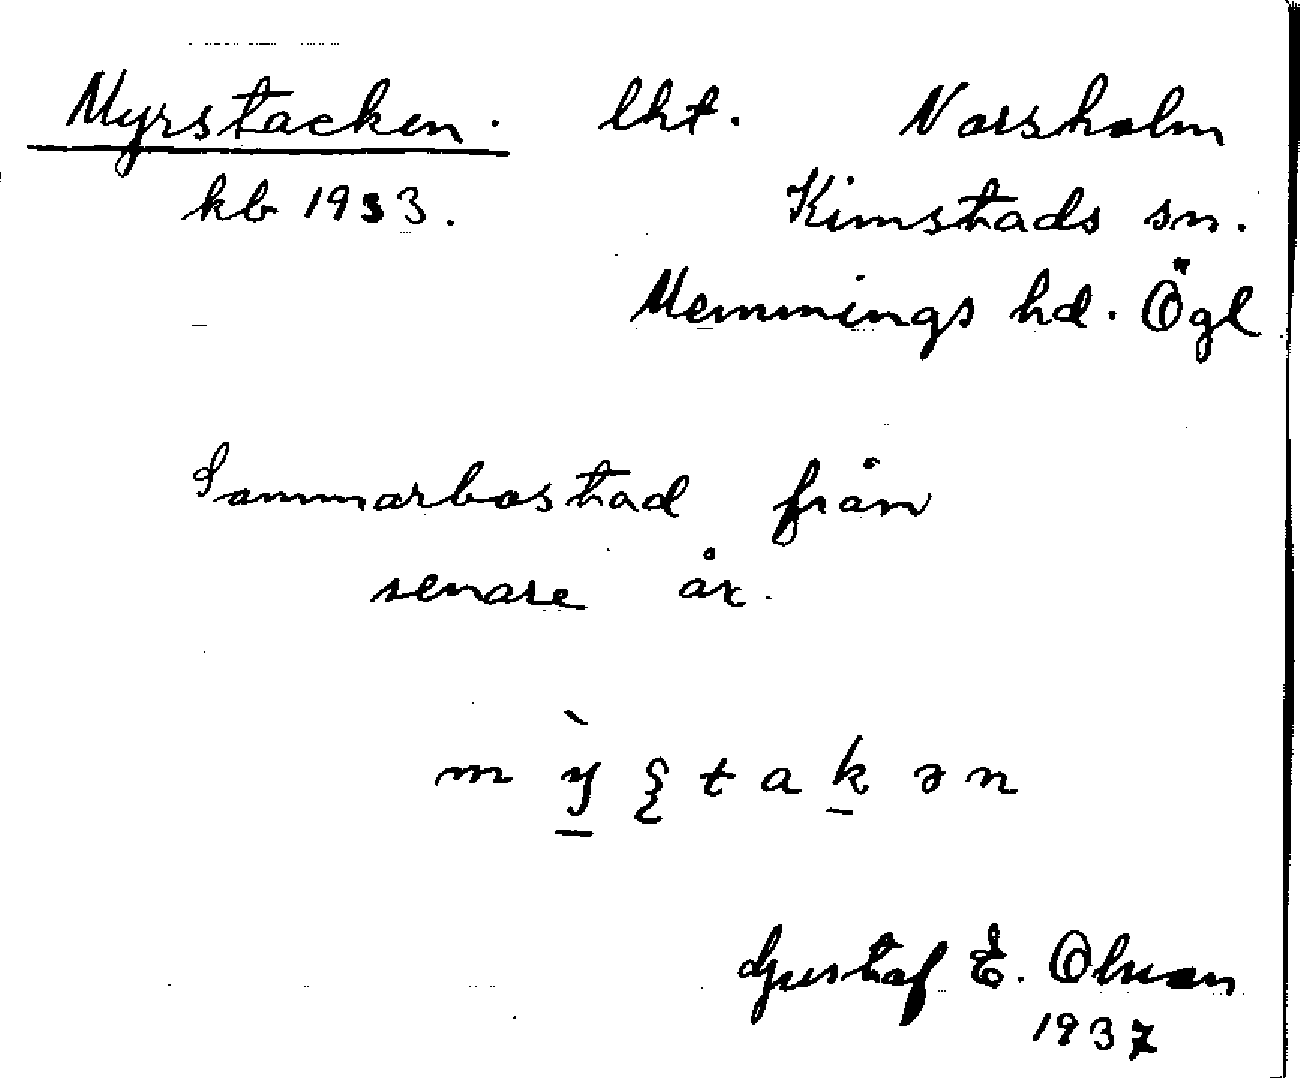 Myrstacken. lht. Norsholm
kb 1933. Kimstads sn.
Memmings hd. Ögl
Sommarbostad från
senare år.
m ỳ ʂ t a k ə n
Gustaf E. Olsson
1937